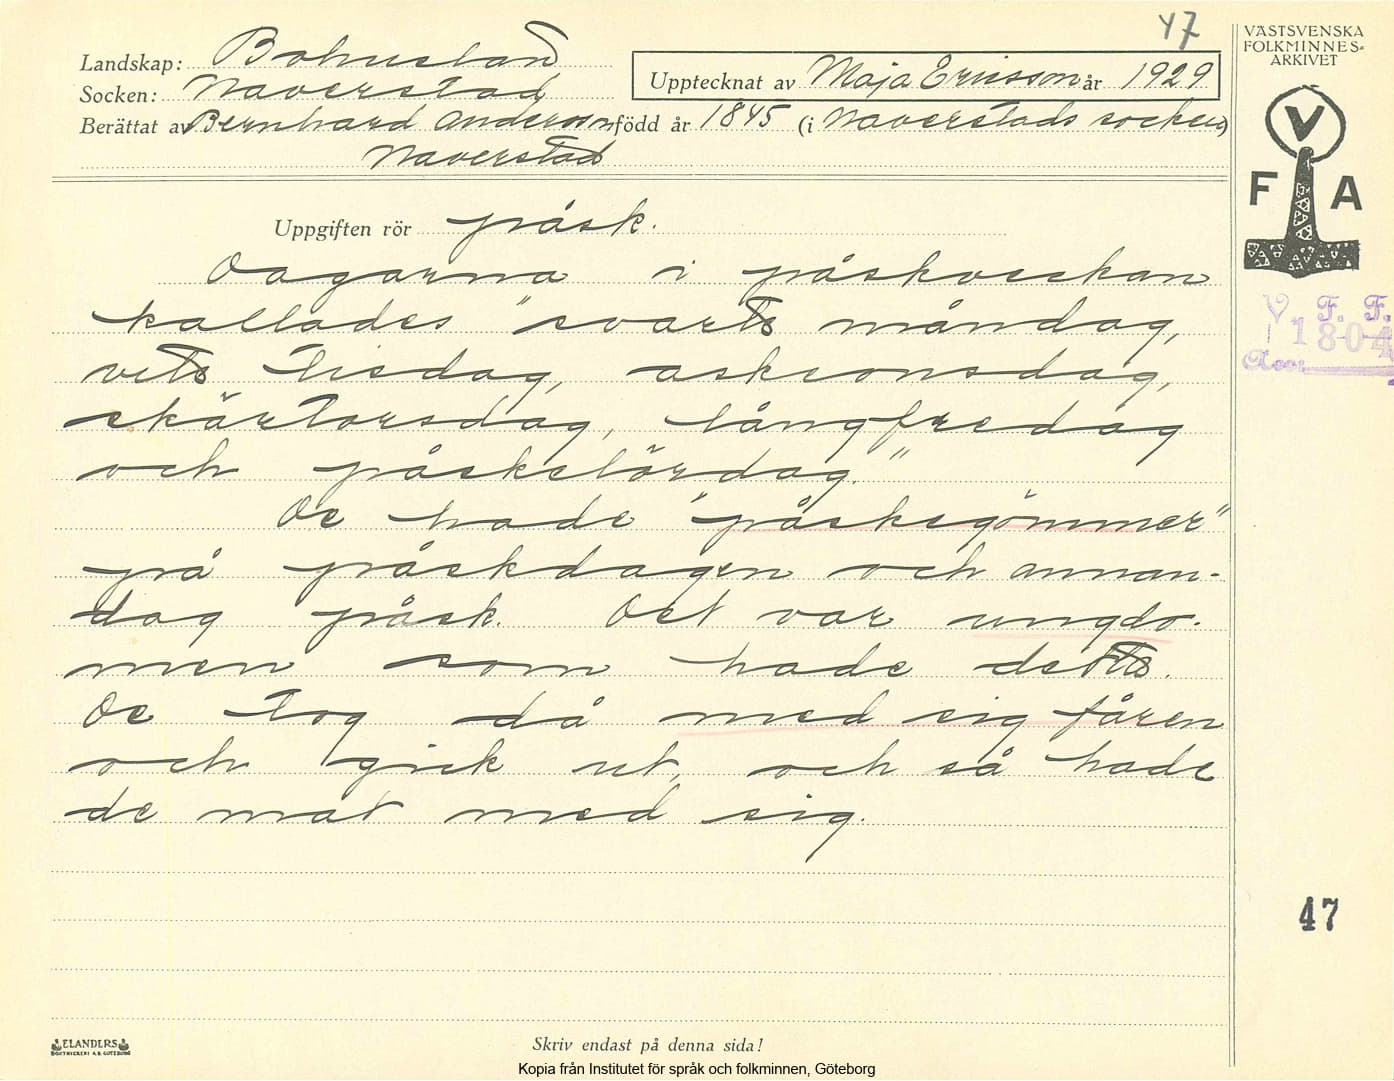 47
Landskap: Bohuslän
Socken: Naverstad
Upptecknat av Maja Ericsson år 1929
Berättat av Bernhard Anderson född år 1845 (i Naverstads socken)
Naverstad
VÄSTSVENSKA
FOLKMINNES-
ARKIVET
V
F A
V. F. F.
1804
Acc.
Uppgiften rör påsk.
Dagarna i påskveckan
kallades "svarta måndag,
vita tisdag, askeonsdag,
skärtorsdag, långfredag
och påskelördag."
De hade "påskegömmer"
på påskdagen och annan-
dag påsk. Det var ungdo-
men som hade detta.
De tog då med sig fåren
och gick ut, och så hade
de mat med sig.
47
ELANDERS
BOKTRYCKERI A.B. GÖTEBORG
Skriv endast på denna sida!
Kopia från Institutet för språk och folkminnen, Göteborg